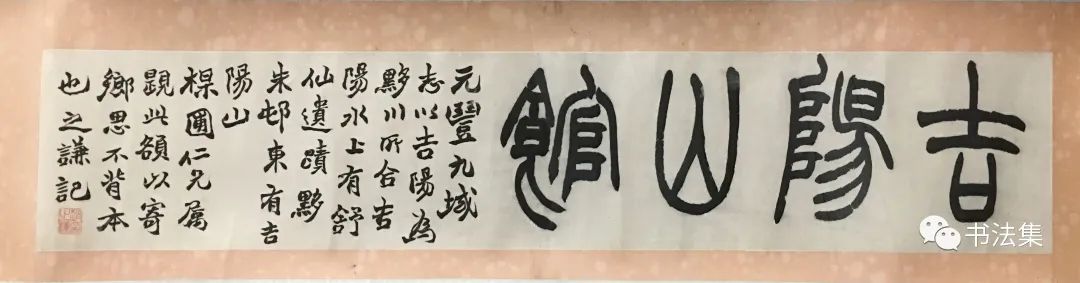 吉陽山館
元豐九域
志以吉陽為
黟川所合吉
陽水上有舒
仙遺蹟黟
朱邨東有吉
陽山
楳圃仁兄属
題此額以寄
鄉思不背本
也之謙記
书法集